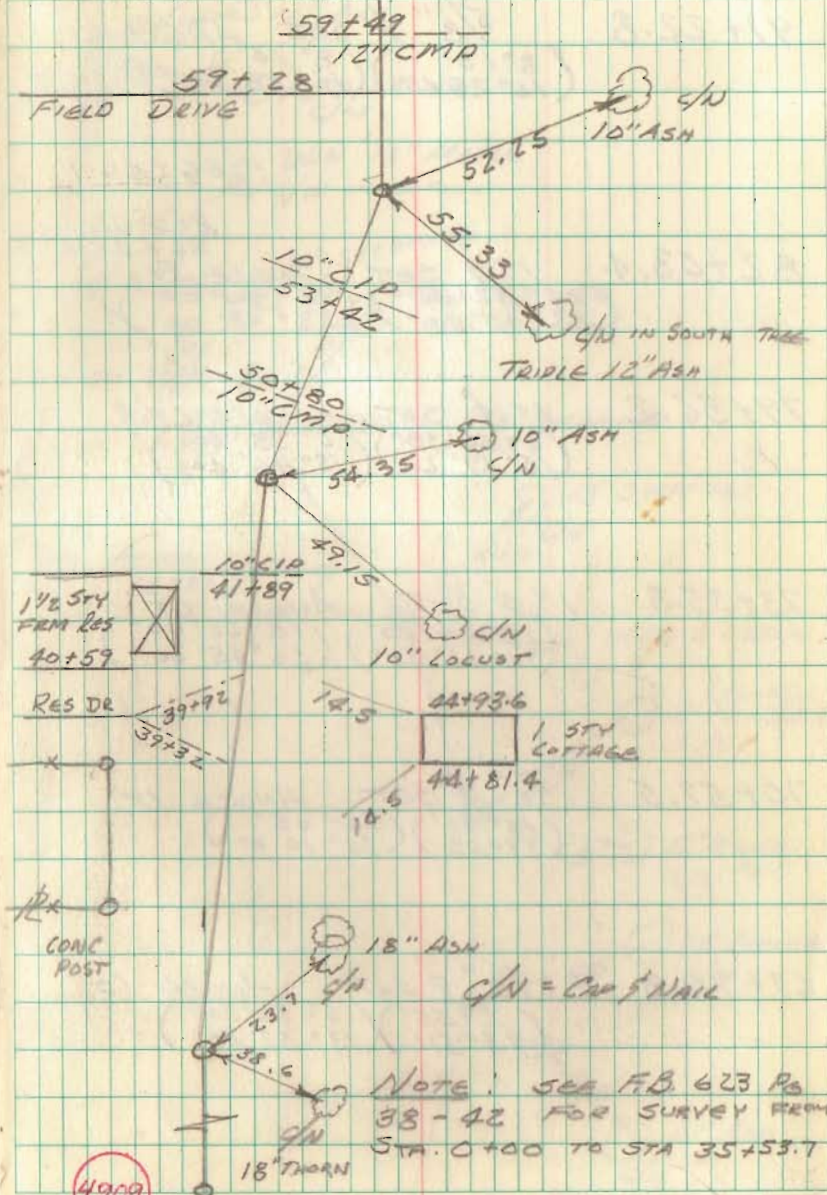 59+49
12" CMP
59+28
FIELD DRIVE
C/N
10" ASH
52.25
55.33
10" CIP
53+42
C/N IN SOUTH TREE
TRIPLE 12" ASH
50+80
10" CMP
10" ASH
C/N
54.35
49.15
10" CIP
41+89
1 1/2 STY
FRM RES
40+59
C/N
10" LOCUST
RES DR
39+92
39+32
14.5
44+93.6
1 STY
COTTAGE
44+81.4
14.5
CONC
POST
18" ASH
C/N
C/N = CAP & NAIL
23.7
38.6
C/N
18" THORN
NOTE: SEE F.B. 623 PG
38-42 FOR SURVEY FROM
STA. 0+00 TO STA 35+53.7
4909